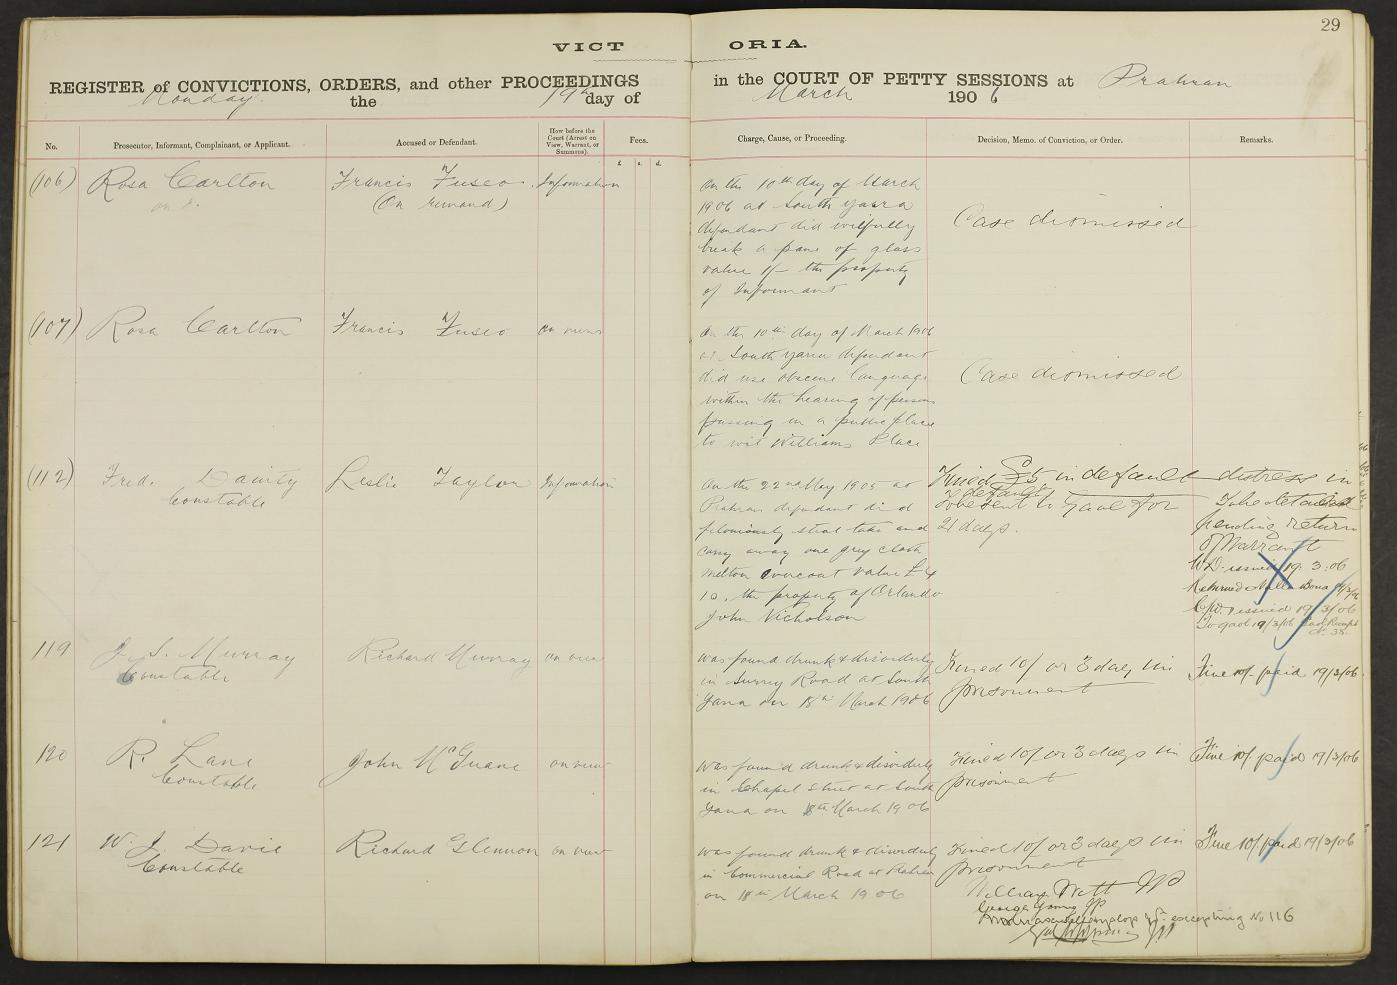 29
VICTORIA.
REGISTER of CONVICTIONS, ORDERS, and other PROCEEDINGS in the COURT OF PETTY SESSIONS at Prahran
Monday the 19th day of March 1906
No.
Prosecutor, Informant, Complainant, or Applicant.
Accused or Defendant.
How before the
Court (Arrest on
View, Warrant, or
Summons).
Fees.
£ s. d.
Charge, Cause, or Proceeding.
Decision, Memo. of Conviction, or Order.
Remarks.
(106)
Rosa Carlton
Francis Fusco
(On remand)
Information
On the 10th day of March
1906 at South Yarra
defendant did wilfully
break a pane of glass
value 1/- the property
of Informant
Case dismissed
(107)
Rosa Carlton
Francis Fusco
On the 10th day of March 1906
at South Yarra defendant
did use obscene language
within the hearing of persons
passing in a public place
to wit Williams Place
Case dismissed
(112)
Fred. Dainty
Constable
Leslie Taylor
Information
On the 22nd May 1905 at
Prahran defendant did
feloniously steal take and
carry away one grey cloth
melton overcoat value £4
10. the property of Orlando
John Nicholson
Fined £5 in default distress in
default
to be sent to Gaol for
21 days.
To be detained
pending return
of Warrant
W.D. issued 19.3.06
Returned Nulla Bona 19/3/06
issued 19/3/06
To gaol 19/3/06 Gaol Receipt
No. 38.
119
J. S. Murray
Constable
Richard Murray
on view
was found drunk & disorderly
in Surrey Road at South
Yarra on 18th March 1906
Fined 10/ or 3 days im
prisonment
Fine 10/- paid 19/3/06.
120
R. Lane
Constable
John McGuane
on view
was found drunk & disorderly
in Chapel Street at South
Yarra on 18th March 1906
Fined 10/ or 3 days im
prisonment
Fine 10/. paid 19/3/06
121
W. J. Davie
Constable
Richard Glennon
on view
was found drunk & disorderly
in Commercial Road at Prahran
on 18th March 1906
Fined 10/ or 3 days im
prisonment
Fine 10/. paid 19/3/06
William Witt JP
George Young JP
excepting No 116
JP